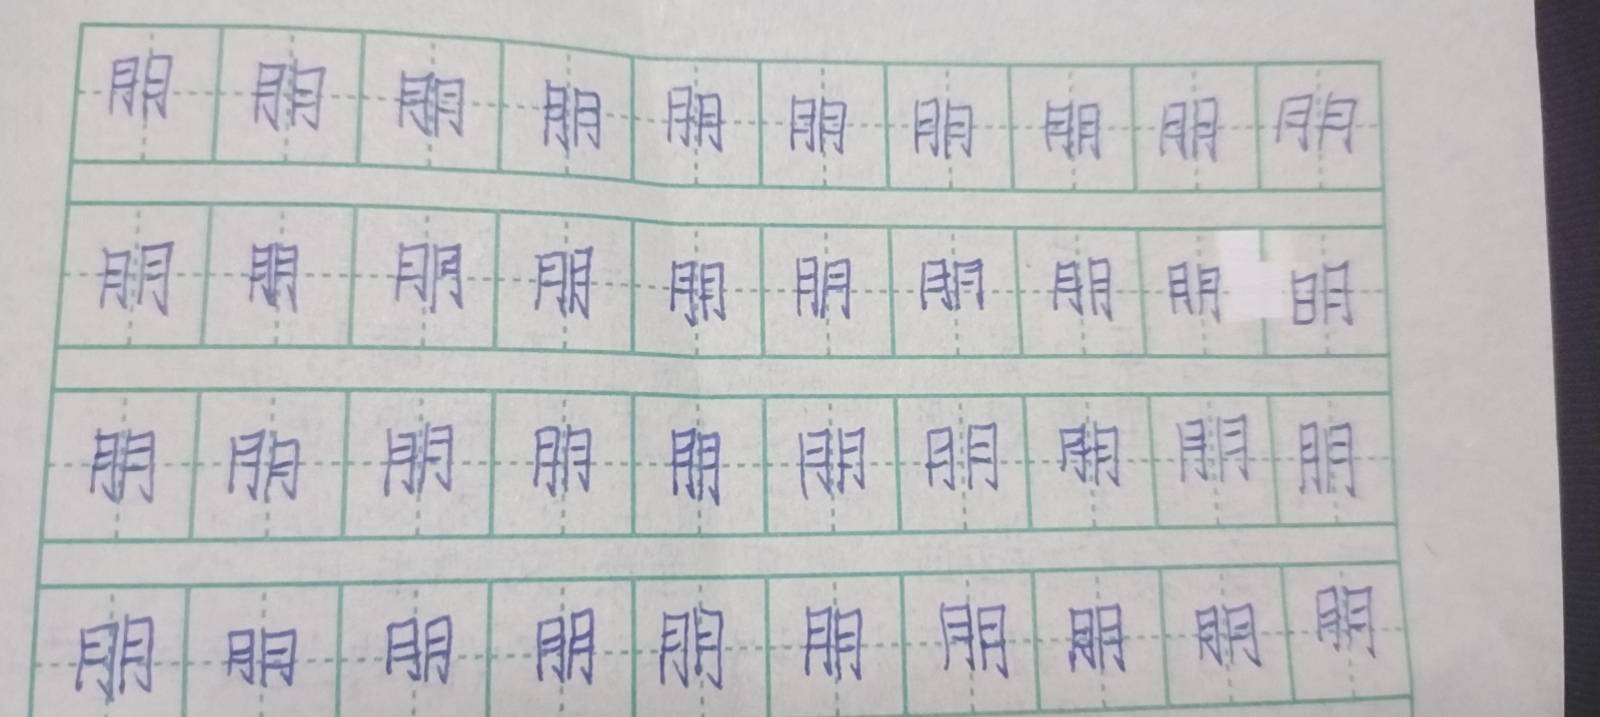 朋朋朋朋朋朋朋朋朋朋
朋朋朋朋朋朋朋朋朋明
朋朋朋朋朋朋朋朋朋朋
朋朋朋朋朋朋朋朋朋朋